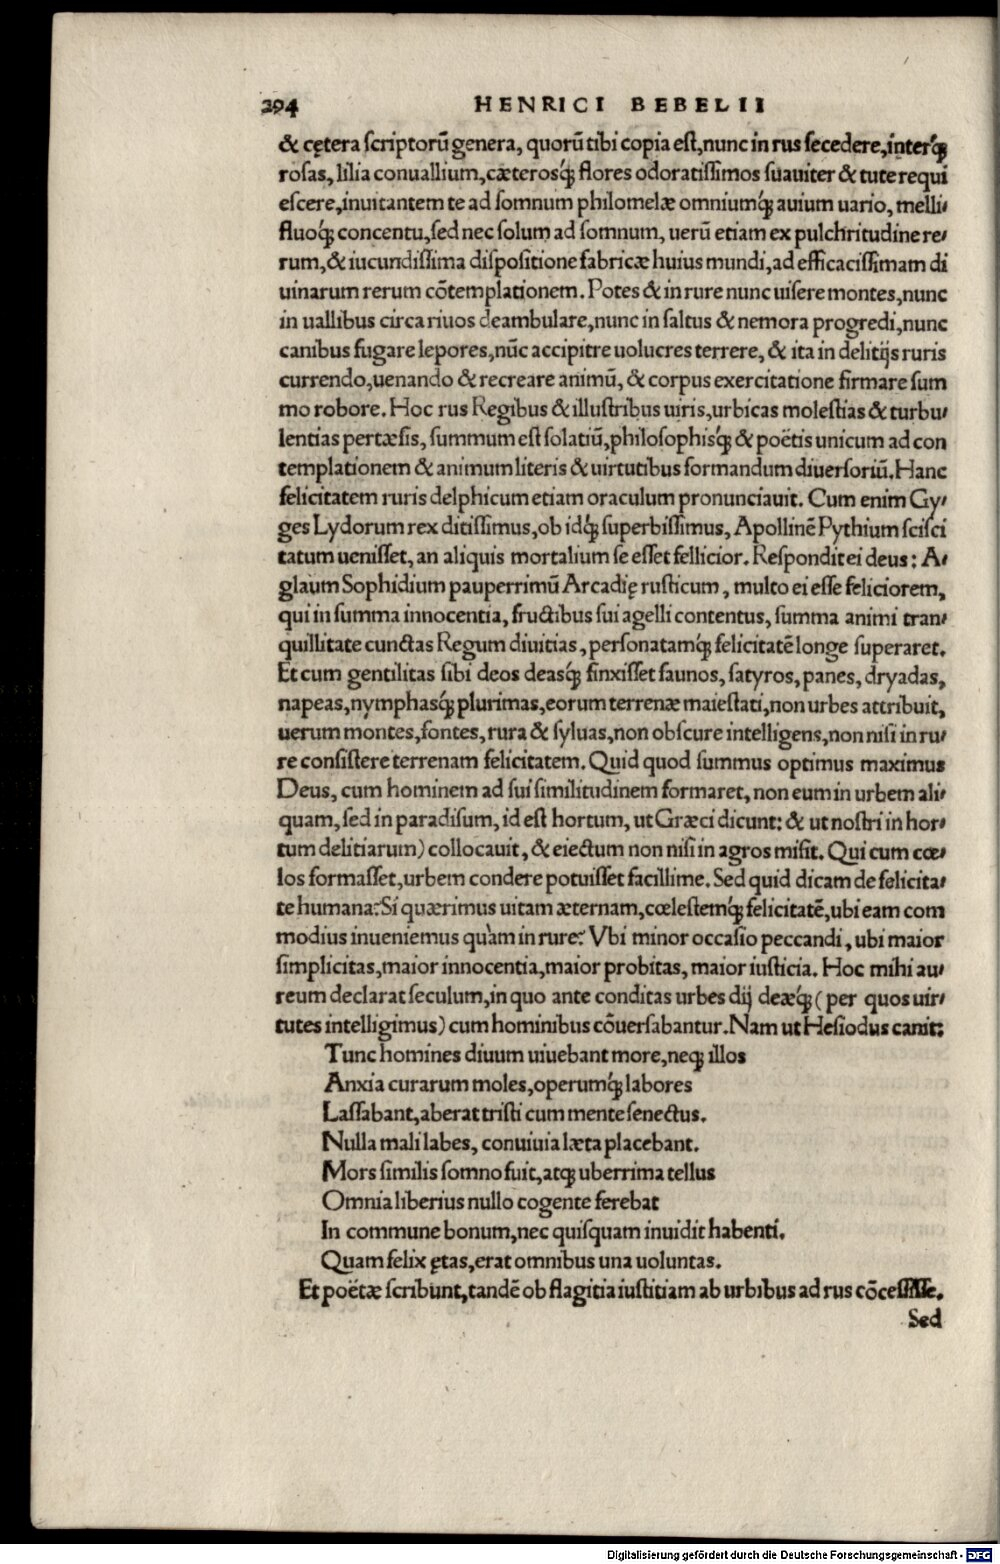 294 HENRICI BEBELII
& cętera ſcriptorũ genera, quorũ tibi copia eſt, nunc in rus ſecedere, interq́;
roſas, lilia conuallium, cæterosq́; flores odoratiſſimos ſuauiter & tute requi
eſcere, inuitantem te ad ſomnum philomelæ omniumq́; auium uario, melli-
fluoq́; concentu, ſed nec ſolum ad ſomnum, uerũ etiam ex pulchritudine re-
rum, & iucundiſſima diſpoſitione fabricæ huius mundi, ad efficaciſſimam di
uinarum rerum cõtemplationem. Potes & in rure nunc uiſere montes, nunc
in uallibus circa riuos deambulare, nunc in ſaltus & nemora progredi, nunc
canibus fugare lepores, nũc accipitre uolucres terrere, & ita in delitijs ruris
currendo, uenando & recreare animũ, & corpus exercitatione firmare ſum
mo robore. Hoc rus Regibus & illuſtribus uiris, urbicas moleſtias & turbu-
lentias pertæſis, ſummum eſt ſolatiũ, philoſophisq́; & poëtis unicum ad con
templationem & animum literis & uirtutibus formandum diuerſoriũ. Hanc
felicitatem ruris delphicum etiam oraculum pronunciauit. Cum enim Gy-
ges Lydorum rex ditiſſimus, ob idq́; ſuperbiſſimus, Apollinẽ Pythium ſciſci
tatum ueniſſet, an aliquis mortalium ſe eſſet fellicior. Reſpondit ei deus: A-
glaum Sophidium pauperrimũ Arcadię ruſticum, multo ei eſſe feliciorem,
qui in ſumma innocentia, fructibus ſui agelli contentus, ſumma animi tran-
quillitate cunctas Regum diuitias, perſonatamq́; felicitatẽ longe ſuperaret.
Et cum gentilitas ſibi deos deasq́; finxiſſet faunos, ſatyros, panes, dryadas,
napeas, nymphasq́; plurimas, eorum terrenæ maieſtati, non urbes attribuit,
uerum montes, fontes, rura & ſyluas, non obſcure intelligens, non niſi in ru-
re conſiſtere terrenam felicitatem. Quid quod ſummus optimus maximus
Deus, cum hominem ad ſui ſimilitudinem formaret, non eum in urbem ali-
quam, ſed in paradiſum, id eſt hortum, ut Græci dicunt: & ut noſtri in hor-
tum delitiarum) collocauit, & eiectum non niſi in agros miſit. Qui cum cœ-
los formaſſet, urbem condere potuiſſet facillime. Sed quid dicam de felicita-
te humana? Si quærimus uitam æternam, cœleſtemq́; felicitatẽ, ubi eam com
modius inueniemus quàm in rure? Vbi minor occaſio peccandi, ubi maior
ſimplicitas, maior innocentia, maior probitas, maior iuſticia. Hoc mihi au-
reum declarat ſeculum, in quo ante conditas urbes dij deæq́; (per quos uir-
tutes intelligimus) cum hominibus cõuerſabantur. Nam ut Heſiodus canit:
Tunc homines diuum uiuebant more, neq; illos
Anxia curarum moles, operumq́; labores
Laſſabant, aberat triſti cum mente ſenectus.
Nulla mali labes, conuiuia læta placebant.
Mors ſimilis ſomno fuit, atq; uberrima tellus
Omnia liberius nullo cogente ferebat
In commune bonum, nec quiſquam inuidit habenti.
Quam felix ętas, erat omnibus una uoluntas.
Et poëtæ ſcribunt, tandẽ ob flagitia iuſtitiam ab urbibus ad rus cõceſſiſſe.
Sed
Digitalisierung gefördert durch die Deutsche Forschungsgemeinschaft - DFG